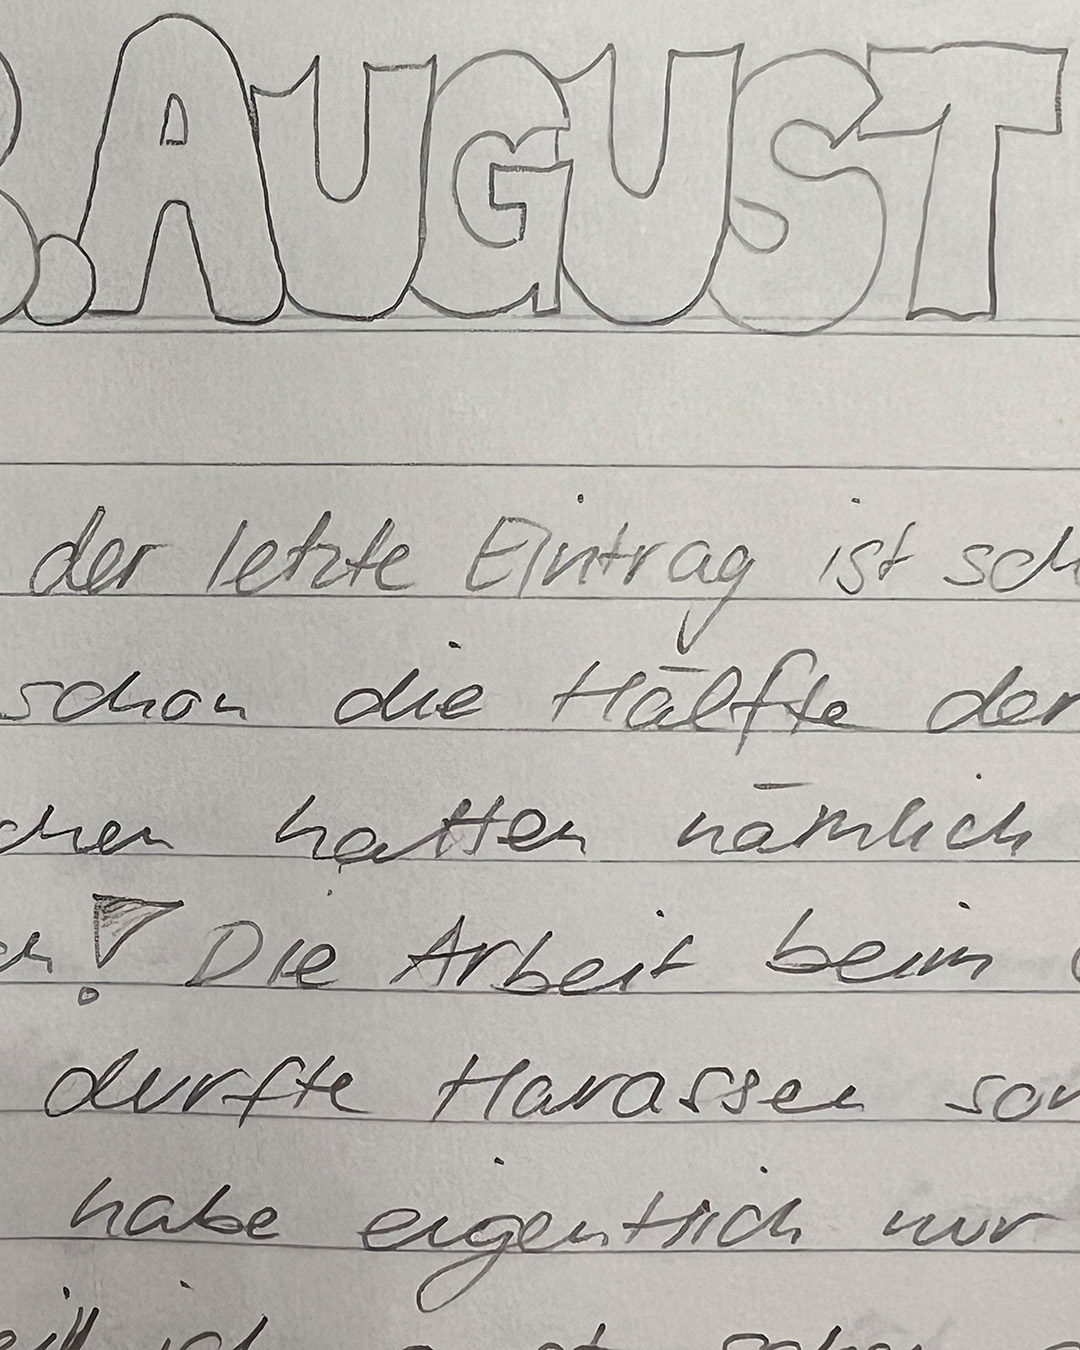 . AUGUST
der letzte Eintrag ist
schon die Hälfte der
hatten nämlich
! Die Arbeit beim
durfte Harassen
habe eigentlich nur
ich